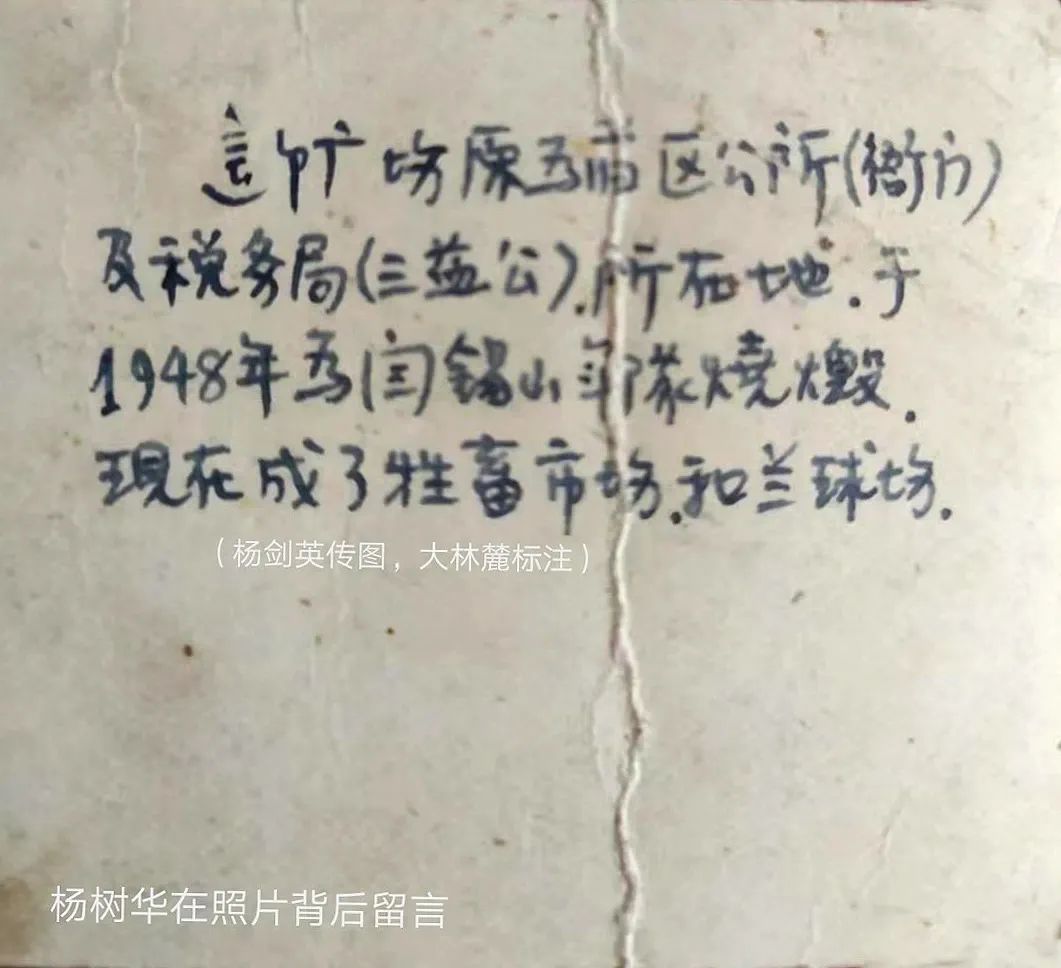 這个广场原为区公所(衙门)
及税务局(三益公).所在地.于
1948年为闫锡山军隊燒燬.
現在成了牲畜市场.和兰球场.
（杨剑英传图，大林麓标注）
杨树华在照片背后留言